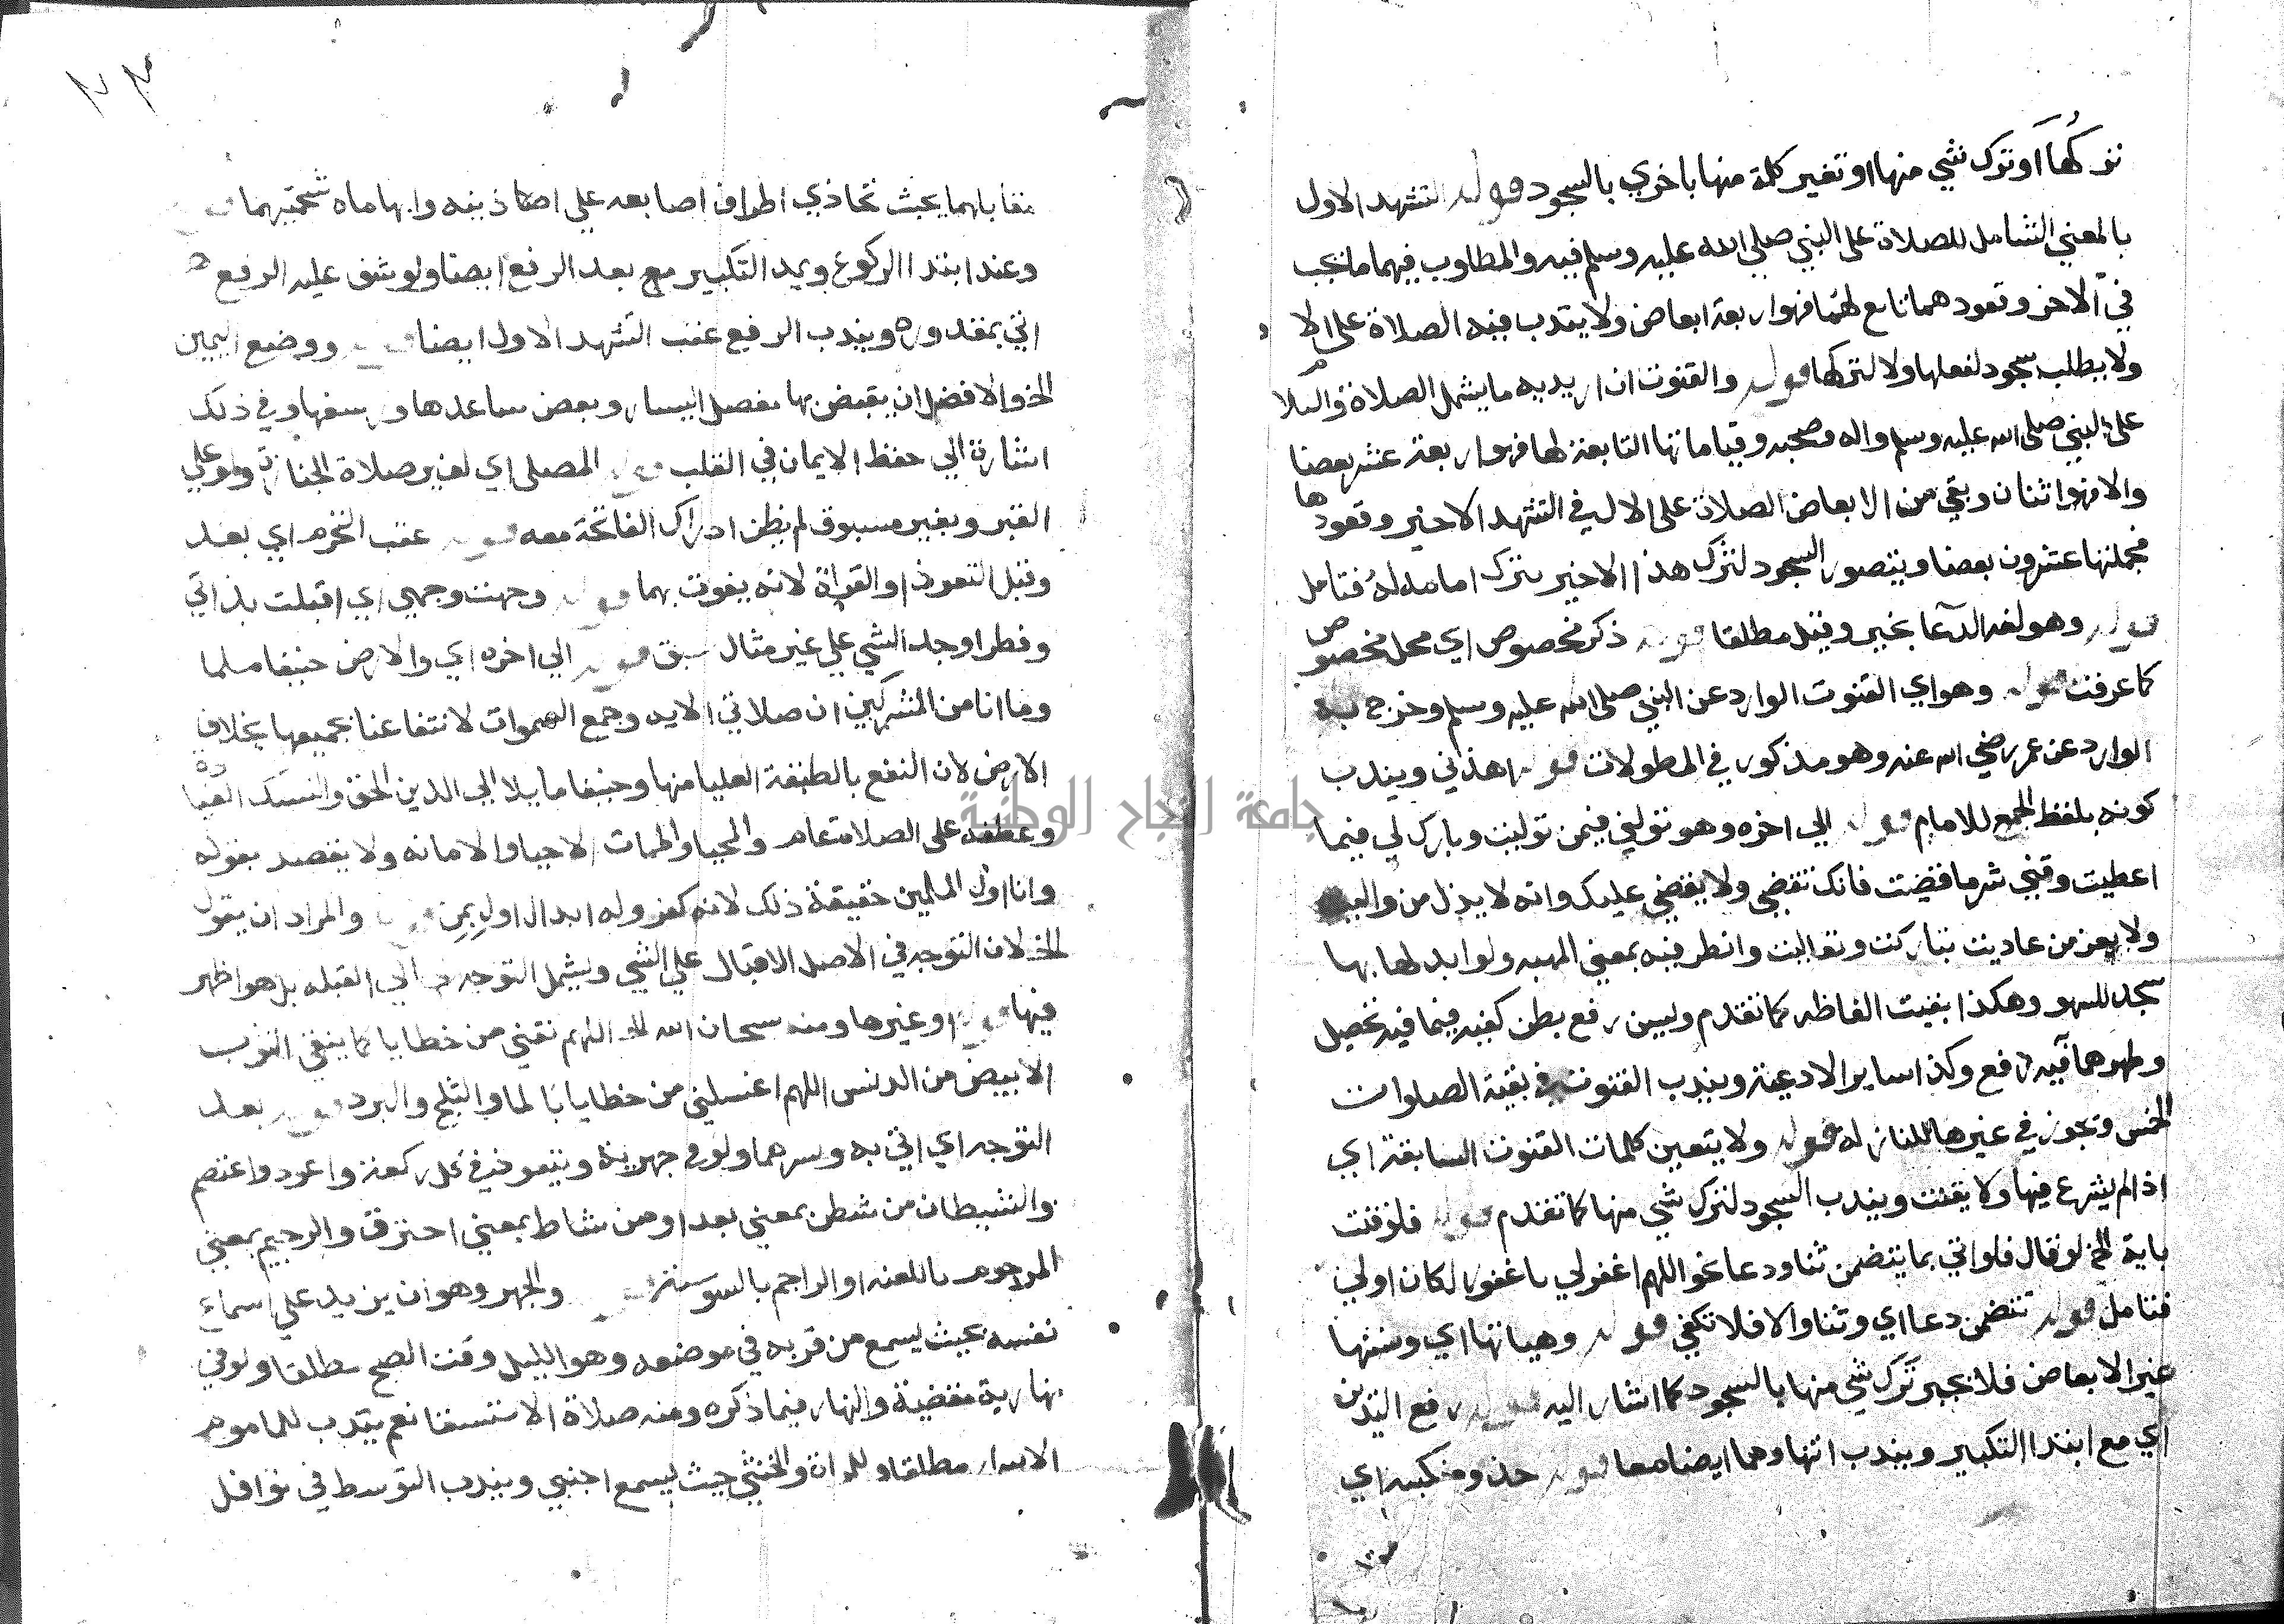 تركها او ترك شي منها او تغير كلمة منها باخري بالسجود قوله التشهد الاول
بالمعني الشامل للصلاة علي النبي صلي الله عليه وسلم فيه والمطلوب فيهما ما يجب
في الاخر وقعودهما تابع لهما فهو اربعة ابعاض ولا يندب فيه الصلاة علي الال
ولا يطلب سجود لفعلها ولا لتركها قوله والقنوت ان اريد به ما يشمل الصلاة والسلام
علي النبي صلي الله عليه وسلم واله وصحبه وقياماتها التابعة لها فهو اربعة عشر بعضا
والا فهو اثنان وبقي من الابعاض الصلاة علي الال في التشهد الاخير وقعودها
فجملتها عشرون بعضا ويتصور السجود لترك هذا الاخير بترك امامه له فتامل
قوله وهو لغة الدعا بخير وقيل مطلقا قوله ذكر مخصوص اي محل مخصوص
كما عرفت قوله وهو اي القنوت الوارد عن النبي صلي الله عليه وسلم وخرج به
الوارد عن عمر رضي الله عنه وهو مذكور في المطولات قوله اهدني ويندب
كونه بلفظ الجمع للامام قوله الي اخره وهو تولني فيمن توليت وبارك لي فيما
اعطيت وقني شر ما قضيت فانك تقضي ولا يقضي عليك وانه لا يذل من واليت
ولا يعز من عاديت تباركت وتعاليت وانظر فيه بمعني المهبه ولو ابدلها بها
سجد للسهو وهكذا بقيت الفاظه كما تقدم ويسن رفع بطن كفيه فيما فيه تحصيل
وظهرهما فيه رفع وكذا ساير الادعية ويندب القنوت في بقية الصلوات
الخمس وتجوز في غيرها للنازله قوله ولا يتعين كلمات القنوت السابقة اي
اذا لم يشرع فيها ولا يقنت ويندب السجود لترك شي منها كما تقدم قوله فلو قنت
باية الخ لو قال فلو اتي بما يتضمن ثنا ودعا نحو اللهم اغفر لي يا غفور لكان اولي
فتامل قوله تتضمن دعا اي وثنا والا فلا تكفي قوله وهياتها اي وسننها
غير الابعاض فلا يجبر ترك شي منها بالسجود كما اشار اليه قوله رفع اليدين
اي مع ابتدا التكبير ويندب انتهاوهما ايضا معا قوله حذو منكبيه اي
مقابلهما بحيث تحاذي اطراف اصابعه علي اعلا اذنيه وابهاماه شحمتيهما
وعند ابتدا الركوع ويمد التكبير مع بعد الرفع ايضا ولو شق عليه الرفع
اتي بمقدوره ويندب الرفع عقب التشهد الاول ايضا قوله ووضع اليمين
الخ والافضل ان يقبض بها مفصل اليسار وبعض ساعدها ورسغها وفي ذلك
اشارة الي حفظ الايمان في القلب قوله المصلي اي لغير صلاة الجنازة ولو علي
القبر وبغير مسبوق لم يظن ادراك الفاتحة معه قوله عقب التحرم اي بعد
وقبل التعوذ او القراة لانه يفوت بهما قوله وجهت وجهي اي اقبلت بذاتي
وفطر اوجد الشي علي غير مثال سبق قوله الي اخره اي والارض حنيفا مسلما
وما انا من المشركين ان صلاتي الايه وجمع السموات لانتفاعنا بجميعها بخلاف
الارض لان النفع بالطبقة العليا منها وحنيفا مايلا الي الدين الحق والنسك العبادة
وعطفه علي الصلاة عام والمحيا والممات الاحيا والاماته ولا يقصد بقوله
وانا اول المسلمين حقيقة ذلك لانه كفر وله ابدال اول بمن قوله والمراد ان يقول
الخ لان التوجه في الاصل الاقبال علي الشي ويشمل التوجه الي القبله بل هو اظهر
فيها قوله او غيرها ومنه سبحان الله اللهم نقني من خطايا كما ينقي الثوب
الابيض من الدنس اللهم اغسلني من خطايا بالما والثلج والبرد قوله بعد
التوجه اي اتي به وسرهما ولو في جهرية ويتعوذ في كل ركعة واعوذ واعتصم
والشيطان من شطن بمعني بعد او من شاط بمعني احترق والرجيم بمعني
المرجوم باللعنه او الراجم بالوسوسة قوله والجهر وهو ان يزيد علي اسماع
نفسه بحيث يسمع من قربه في موضعه وهو الليل وقت الصبح مطلقا ولو في
نهارية مقضية والنهار فيما ذكره ومنه صلاة الاستسقا نعم يندب للماموم
الاسرار مطلقا وللمراة والخنثي حيث يسمع اجنبي ويندب التوسط في نوافل
جامعة النجاح الوطنية